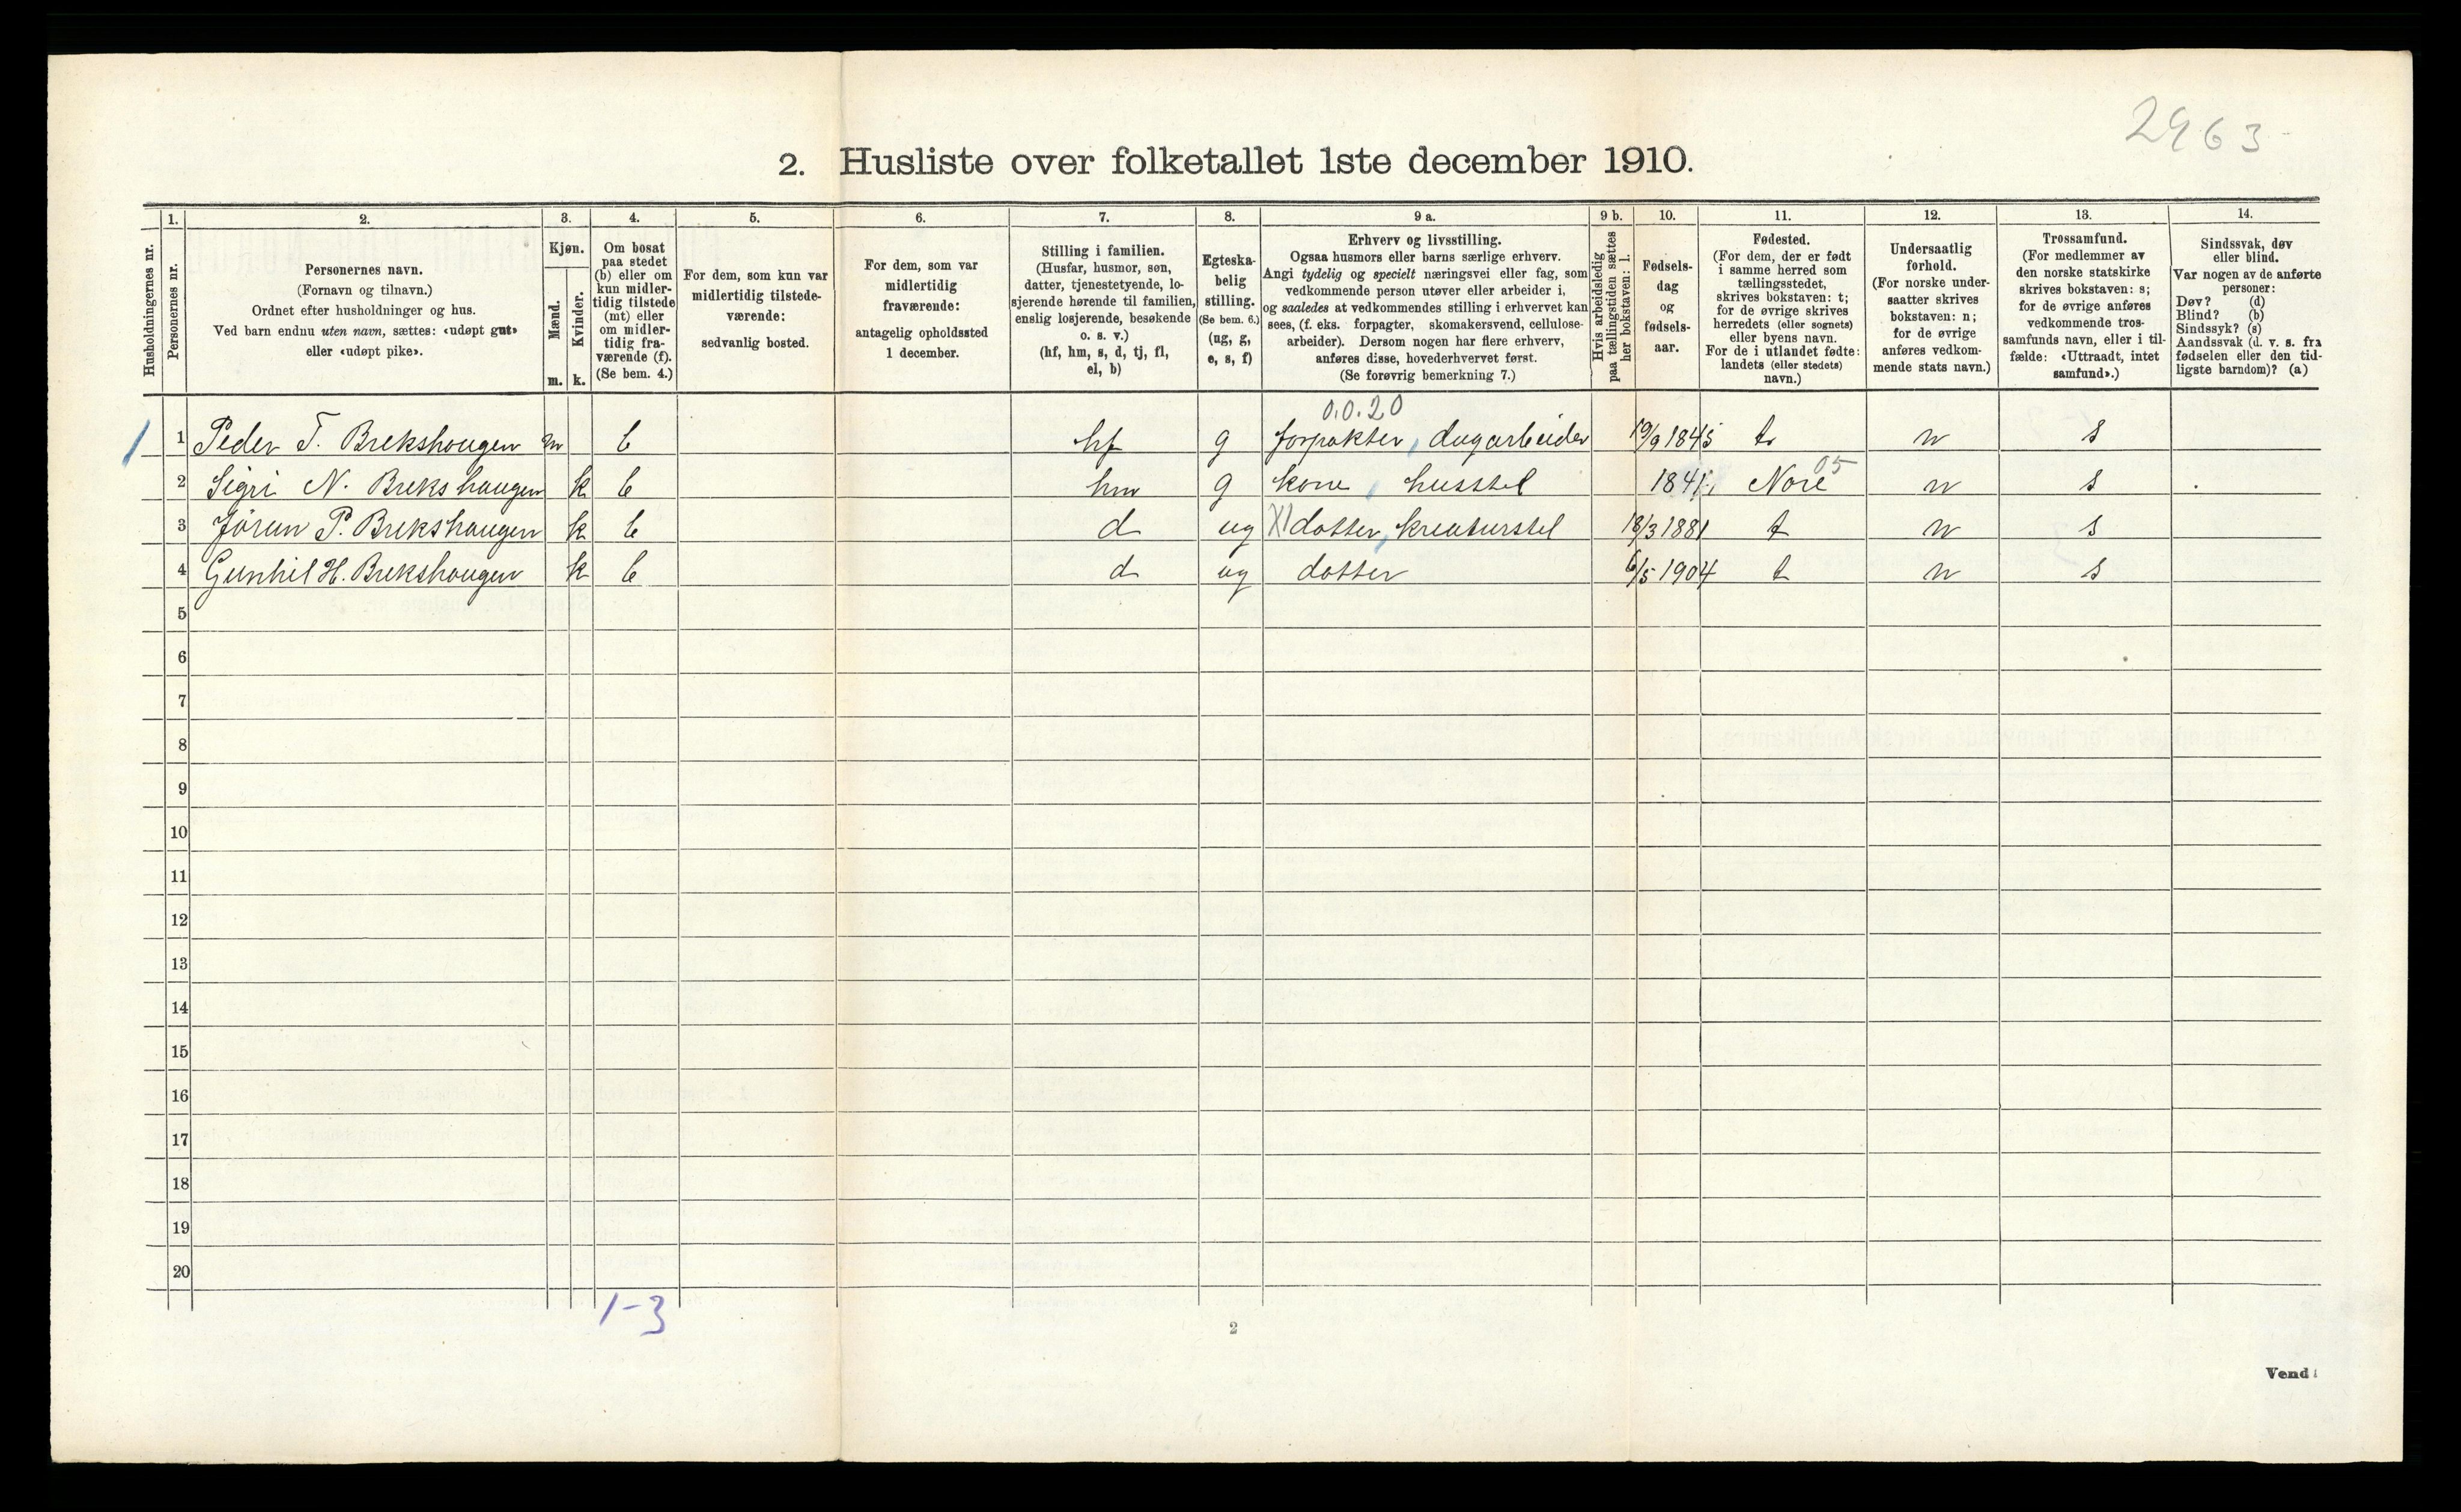 2963
2. Husliste over folketallet 1ste december 1910.
Husholdningernes nr.
1. Personernes nr.
2. Personernes navn. (Fornavn og tilnavn.) Ordnet efter husholdninger og hus. Ved barn endnu uten navn, sættes: «udøpt gut» eller «udøpt pike».
3. Kjøn. Mænd. m. Kvinder. k.
4. Om bosat paa stedet (b) eller om kun midlertidig tilstede (mt) eller om midlertidig fraværende (f). (Se bem. 4.)
5. For dem, som kun var midlertidig tilstedeværende: sedvanlig bosted.
6. For dem, som var midlertidig fraværende: antagelig opholdssted 1 december.
7. Stilling i familien. (Husfar, husmor, søn, datter, tjenestetyende, losjerende hørende til familien, enslig losjerende, besøkende o. s. v.) (hf, hm, s, d, tj, fl, el, b)
8. Egteskabelig stilling. (Se bem. 6.) (ug, g, e, s, f)
9 a. Erhverv og livsstilling. Ogsaa husmors eller barns særlige erhverv. Angi tydelig og specielt næringsvei eller fag, som vedkommende person utøver eller arbeider i, og saaledes at vedkommendes stilling i erhvervet kan sees, (f. eks. forpagter, skomakersvend, cellulosearbeider). Dersom nogen har flere erhverv, anføres disse, hovederhvervet først. (Se forøvrig bemerkning 7.)
9 b. Hvis arbeidsledig paa tællingstiden sættes her bokstaven: l.
10. Fødselsdag og fødselsaar.
11. Fødested. (For dem, der er født i samme herred som tællingsstedet, skrives bokstaven: t; for de øvrige skrives herredets (eller sognets) eller byens navn. For de i utlandet fødte: landets (eller stedets) navn.)
12. Undersaatlig forhold. (For norske undersaatter skrives bokstaven: n; for de øvrige anføres vedkommende stats navn.)
13. Trossamfund. (For medlemmer av den norske statskirke skrives bokstaven: s; for de øvrige anføres vedkommende trossamfunds navn, eller i tilfælde: «Uttraadt, intet samfund».)
14. Sindssvak, døv eller blind. Var nogen av de anførte personer: Døv? (d) Blind? (b) Sindssyk? (s) Aandssvak (d. v. s. fra fødselen eller den tidligste barndom)? (a)
0.0.20
1 1 Peder T. Brekshaugen m b hf g forpakter, dagarbeider 19/9 1845 t n s
05
2 Sigri N. Brekshaugen k b hm g kone, husstel 1841 Nore n s
3 Jørun P. Brekshaugen k b d ug datter, kreaturstel 18/3 1881 t n s
4 Gunhil H. Brekshaugen k b d ug datter 6/5 1904 t n s
5
6
7
8
9
10
11
12
13
14
15
16
17
18
19
20
1-3
2
Vend